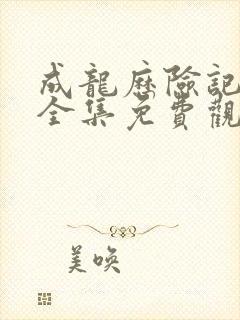 成龍歷險記
全集免費觀
美喚